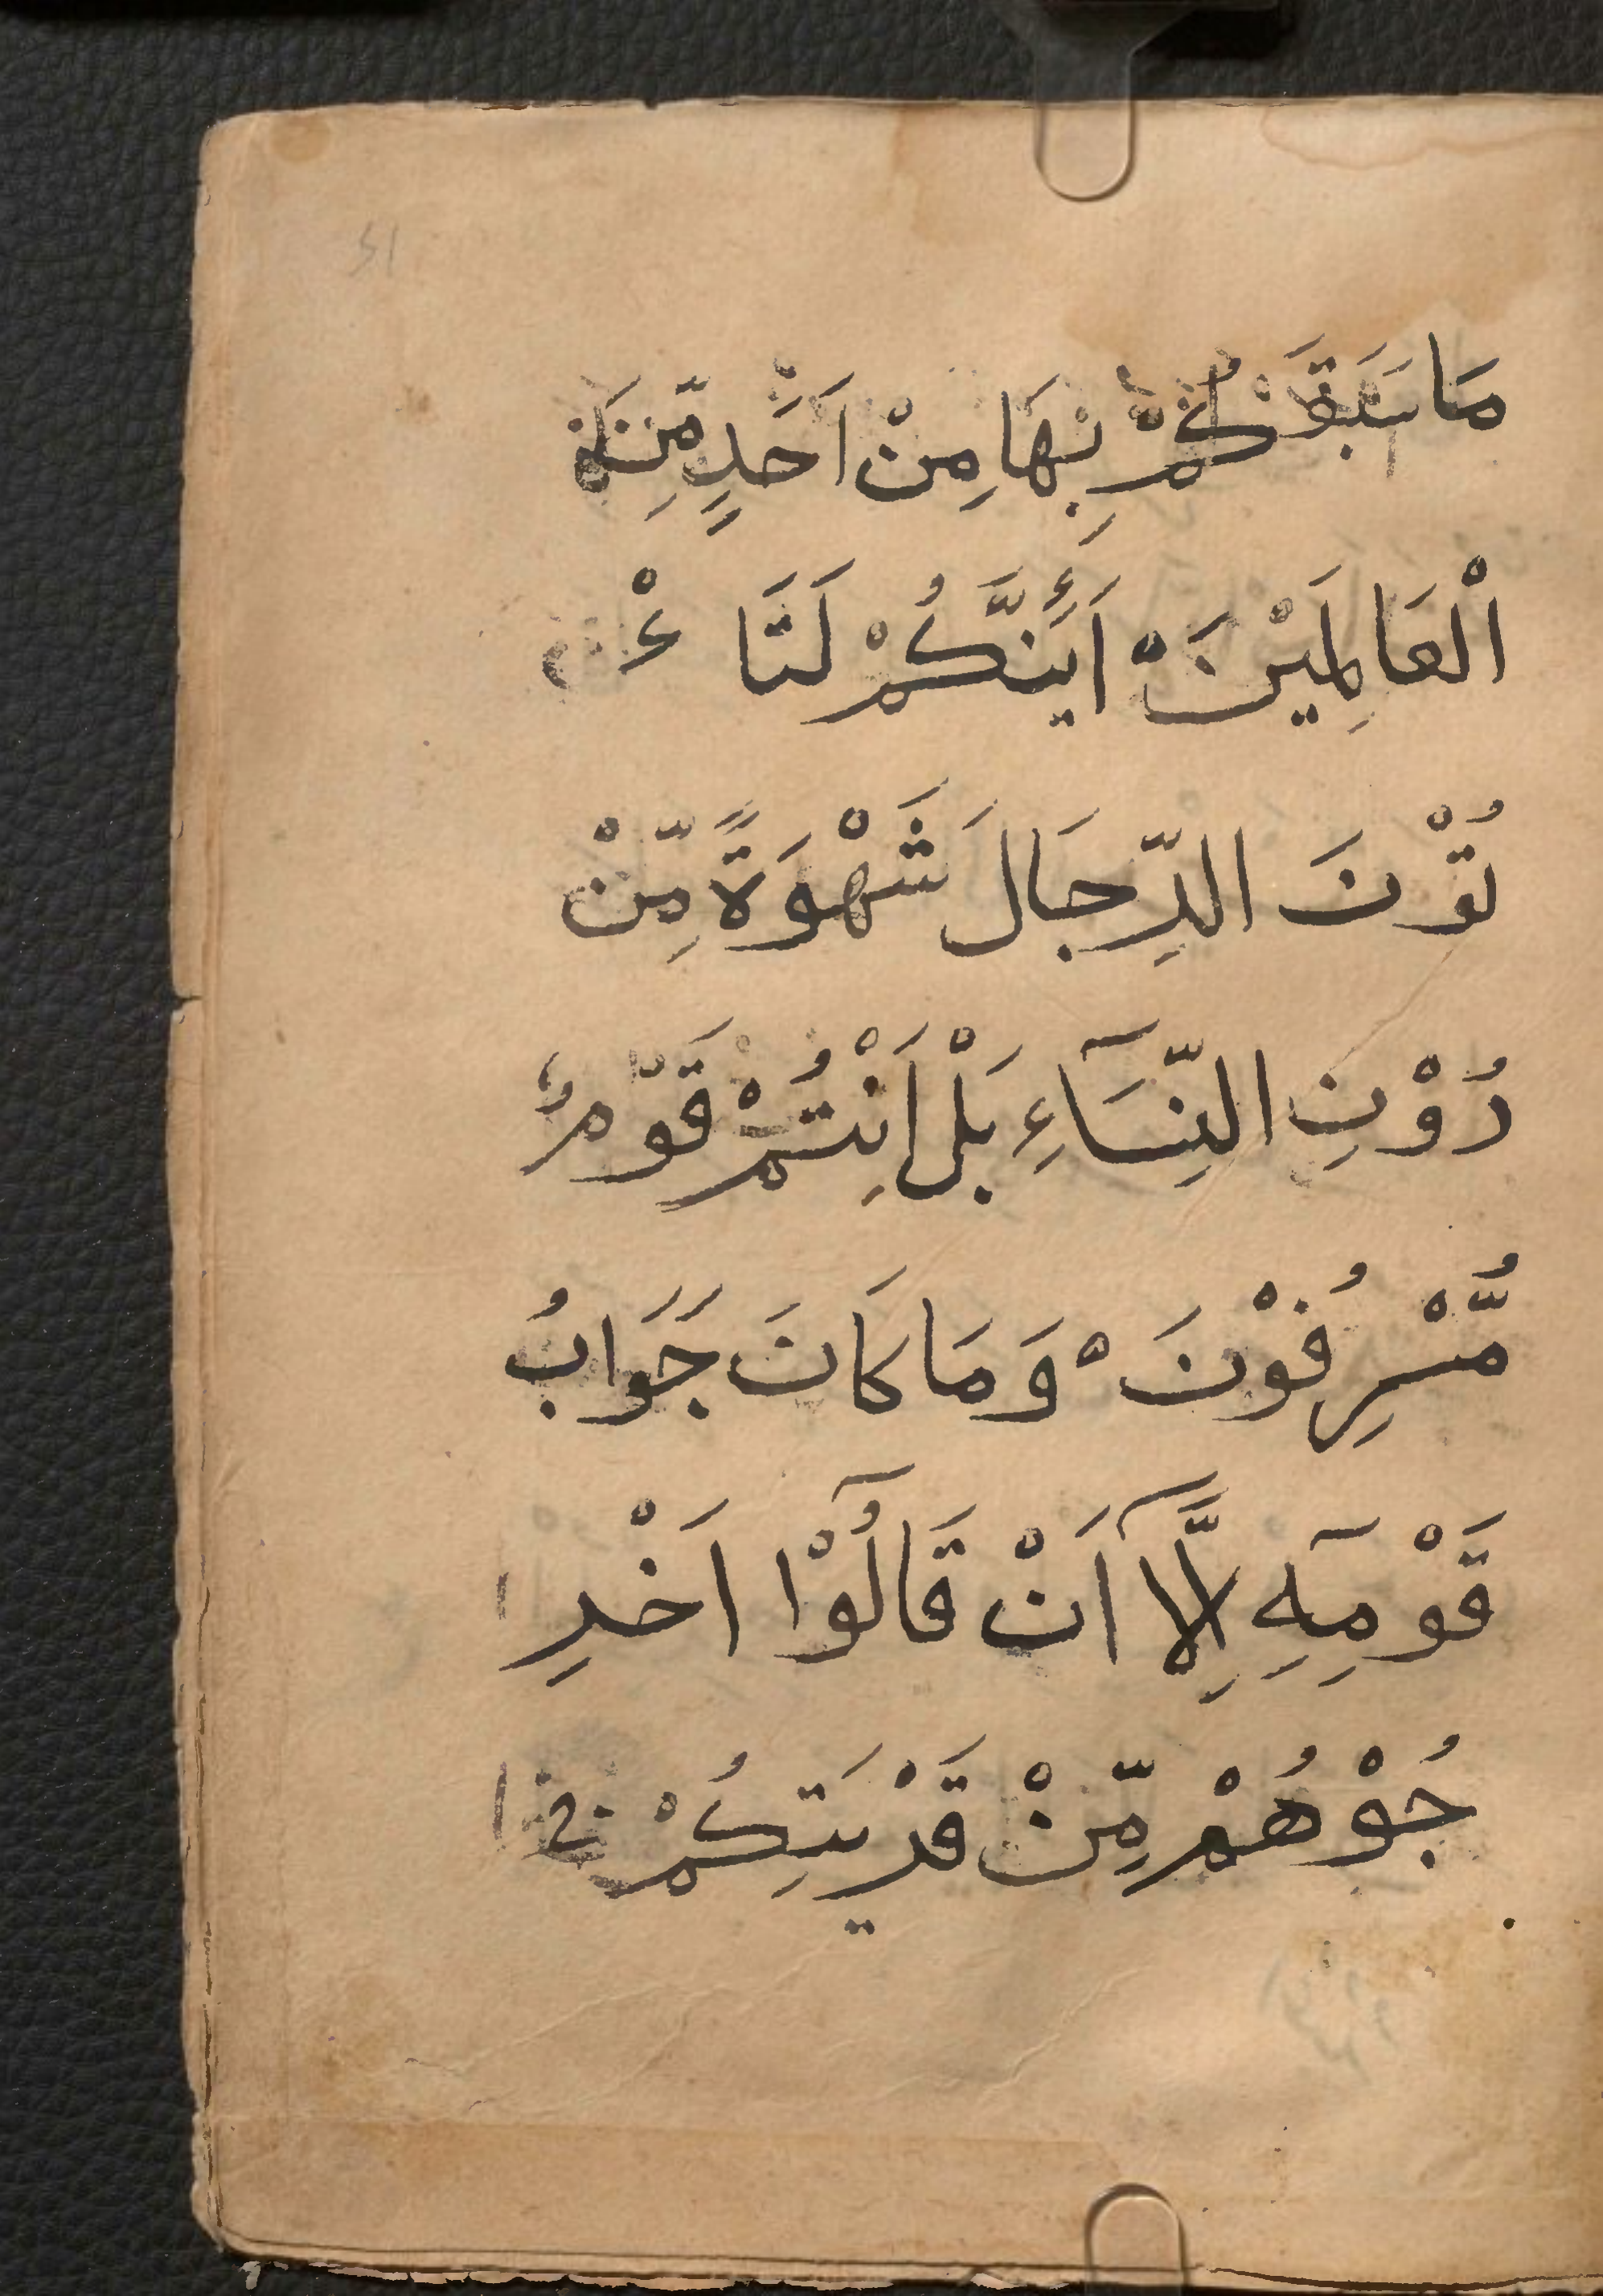 مَا سَبَقَكُمْ بِهَا مِنْ اَحَدٍ مِّنَ
الْعَالَمِيْنَ اَئِنَّكُمْ لَتَا ءْ
تُوْنَ الرِّجَالَ شَهْوَةً مِّنْ
دُوْنِ النِّسَآءِ بَلْ اَنْتُمْ قَوْمٌ
مُّسْرِفُوْنَ وَمَا كَانَ جَوَابُ
قَوْمِهٖٓ اِلَّآ اَنْ قَالُوْٓا اَخْرِ
جُوْهُمْ مِّنْ قَرْيَتِكُمْ